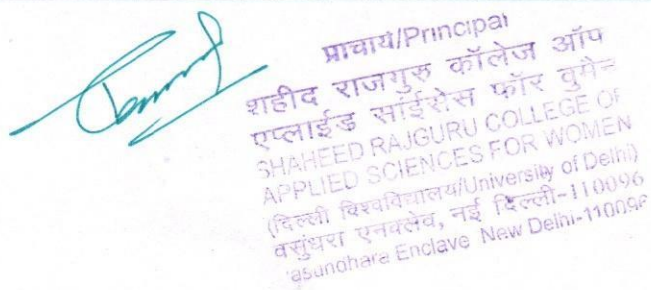 प्राचार्य/Principal
शहीद राजगुरु कॉलेज ऑप
एप्लाईड साईंसेस फॉर वुमैन
SHAHEED RAJGURU COLLEGE OF
APPLIED SCIENCES FOR WOMEN
(दिल्ली विश्वविद्यालय/University of Delhi)
वसुंधरा एनक्लेव, नई दिल्ली-110096
asundhara Enclave New Delhi-110096